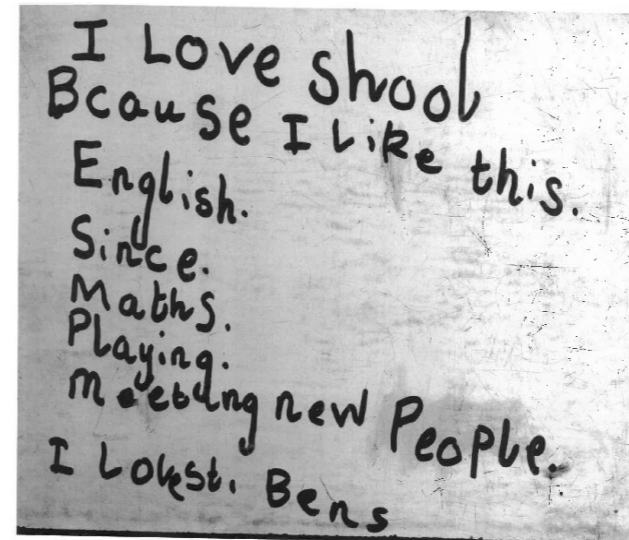 I Love shool
Bcause I Like this.
English.
Since.
Maths.
Playing.
Meeting new People.
I Bens